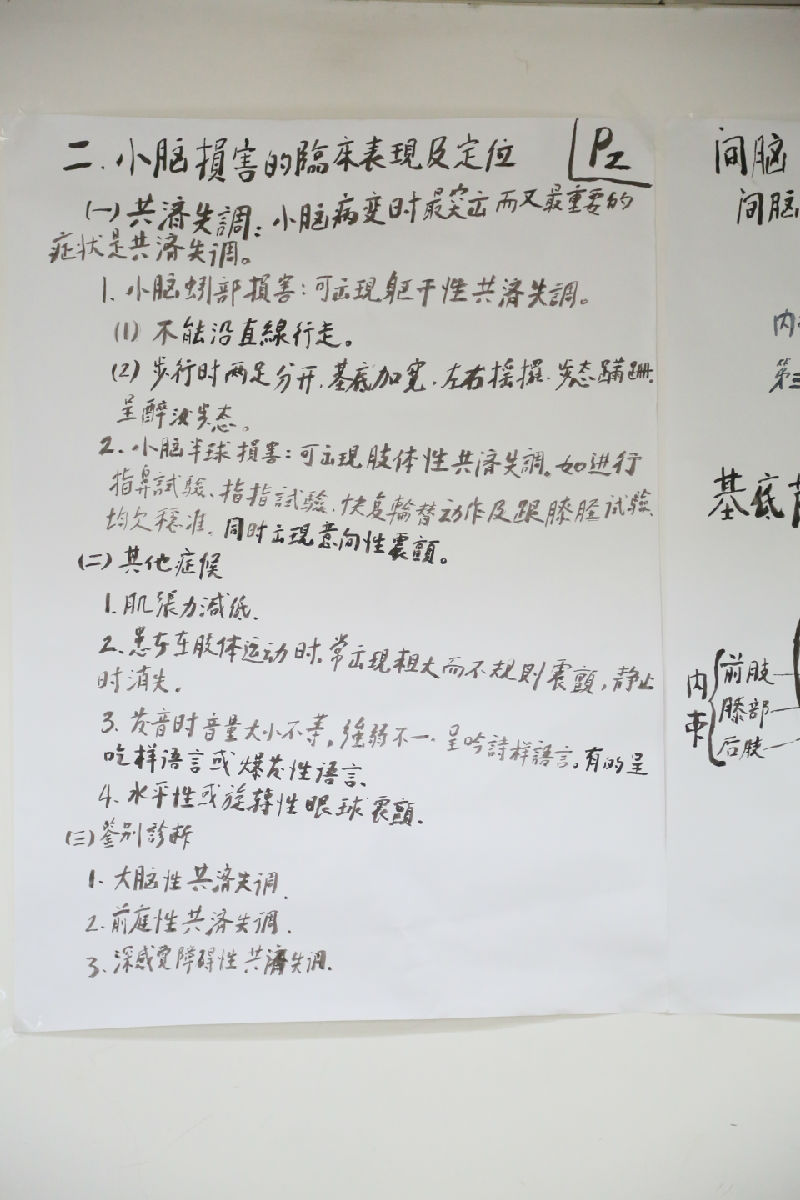 二、小脑損害的臨床表現及定位
P2
(一)共濟失調：小脑病变时最突出而又最重要的
症状是共济失调。
1. 小脑蚓部損害：可出現躯干性共濟失調。
(1) 不能沿直線行走。
(2) 步行时两足分开、基底加宽、左右摇摆、步态蹒跚、
呈醉汉步态。
2. 小脑半球損害：可出現肢体性共濟失調。如进行
指鼻試驗、指指試驗、快复輪替动作及跟膝胫试驗
均欠穩准，同时出現意向性震顫。
(二)其他症候
1. 肌張力減低.
2. 患者在肢体运动时，常出現粗大而不規則震顫，静止
时消失.
3. 发音时音量大小不等，強弱不一、呈吟詩样語言。有的呈
吃样语言或爆发性语言.
4. 水平性或旋轉性眼球震顫.
(三)鉴别診断
1. 大脑性共济失调.
2. 前庭性共济失调.
3. 深感觉障碍性共濟失调.
间脑
间脑
内
第三
基底
内束
前肢
膝部
后肢